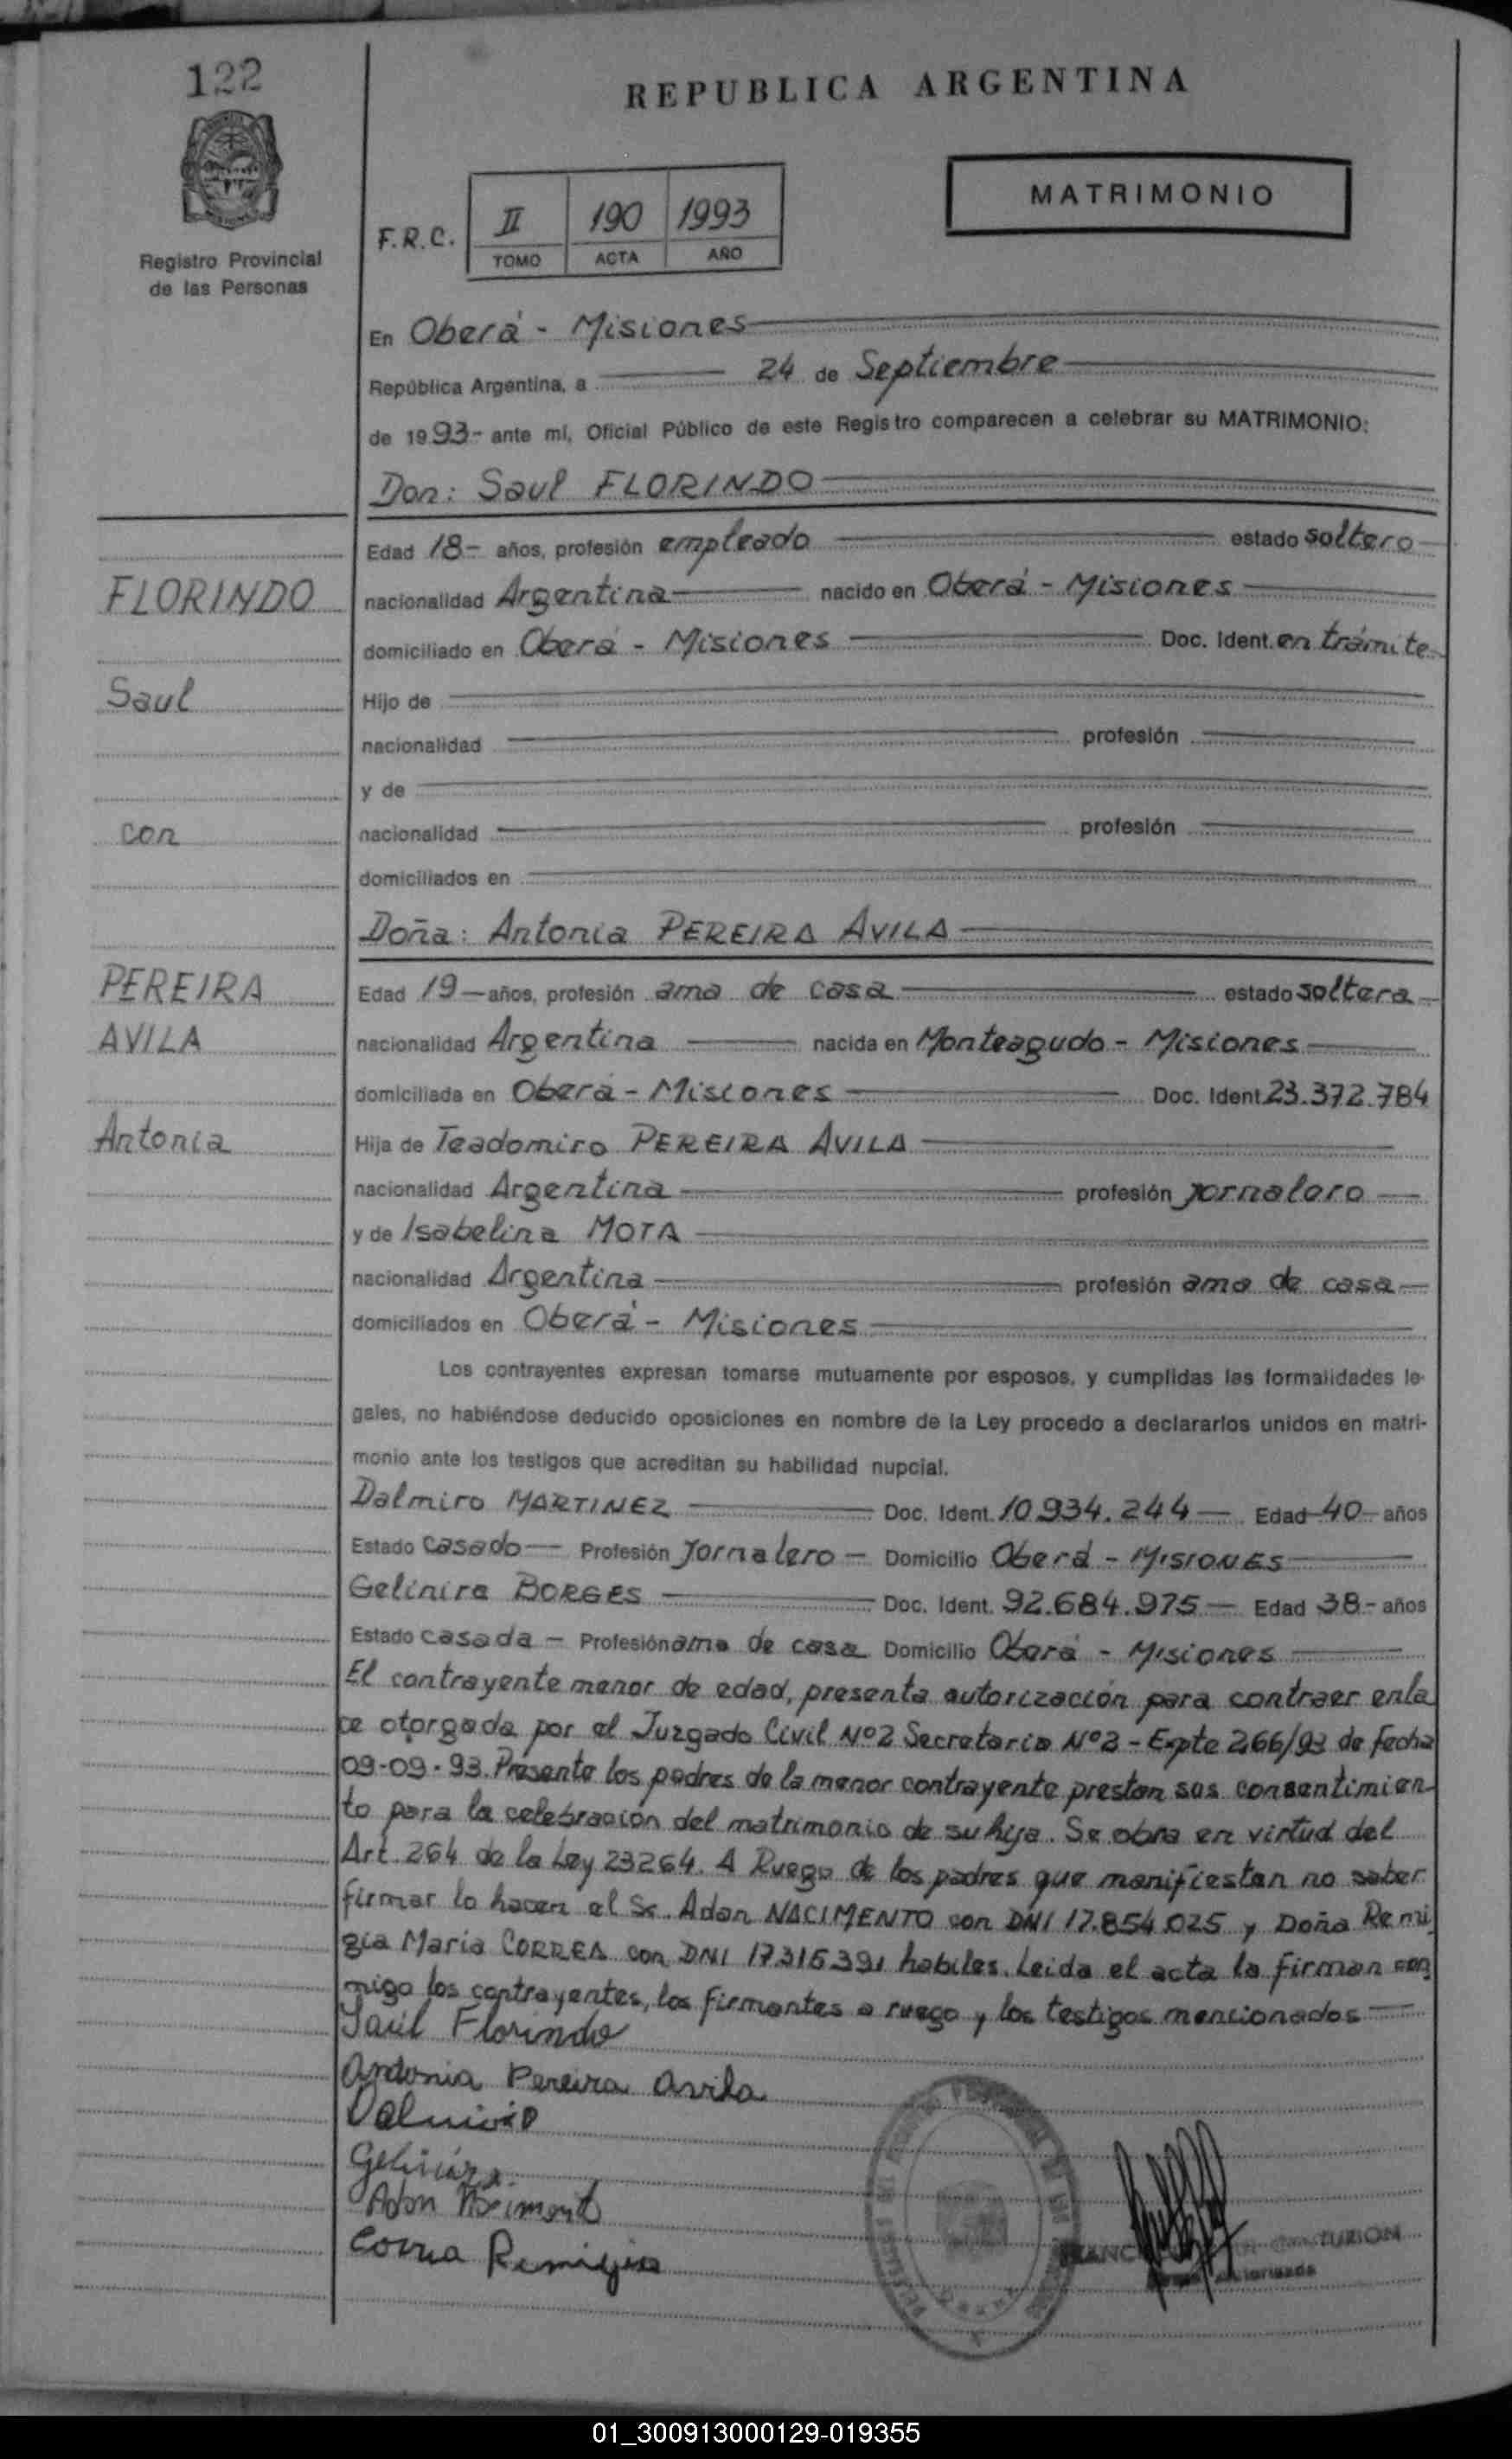 122
REPUBLICA ARGENTINA
Registro Provincial
de las Personas
F.R.C.
II 190 1993
TOMO ACTA AÑO
MATRIMONIO
En Oberá - Misiones
República Argentina, a 24 de Septiembre
de 1993- ante mí, Oficial Público de este Registro comparecen a celebrar su MATRIMONIO:
Don: Saul FLORINDO
Edad 18- años, profesión empleado estado soltero
FLORINDO
nacionalidad Argentina nacido en Oberá - Misiones
domiciliado en Oberá - Misiones Doc. Ident. en trámite
Saul
Hijo de
nacionalidad profesión
y de
con
nacionalidad profesión
domiciliados en
Doña: Antonia PEREIRA AVILA
PEREIRA
Edad 19-años, profesión ama de casa estado soltera
AVILA
nacionalidad Argentina nacida en Monteagudo - Misiones
domiciliada en Oberá - Misiones Doc. Ident. 23.372.784
Antonia
Hija de Teadomiro PEREIRA AVILA
nacionalidad Argentina profesión jornalero
y de Isabelina MOTA
nacionalidad Argentina profesión ama de casa
domiciliados en Oberá - Misiones
Los contrayentes expresan tomarse mutuamente por esposos, y cumplidas las formalidades le-
gales, no habiéndose deducido oposiciones en nombre de la Ley procedo a declararlos unidos en matri-
monio ante los testigos que acreditan su habilidad nupcial.
Dalmiro MARTINEZ Doc. Ident. 10.934.244 Edad 40 años
Estado Casado Profesión Jornalero Domicilio Oberá - MISIONES
Gelinira BORGES Doc. Ident. 92.684.975 Edad 38- años
Estado casada - Profesión ama de casa Domicilio Oberá - Misiones
El contrayente menor de edad, presenta autorización para contraer enla
ce otorgada por el Juzgado Civil Nº2 Secretaria Nº2 - Expte 266/93 de fecha
09-09-93. Presente los padres de la menor contrayente prestan sus consentimien
to para la celebración del matrimonio de su hija. Se obra en virtud del
Art. 264 de la Ley 23264. A Ruego de los padres que manifiestan no saber
firmar lo hacen el Sr. Adan NACIMENTO con DNI 17.854.025 y Doña Remi
gia Maria CORREA con DNI 17.315.391 habiles. Leida el acta la firman con
migo los contrayentes, los firmantes a ruego y los testigos mencionados
Saúl Florindo
Antonia Pereira Avila
Dalmiro
Gelinira
Adan
Correa Remigia
01_300913000129-019355